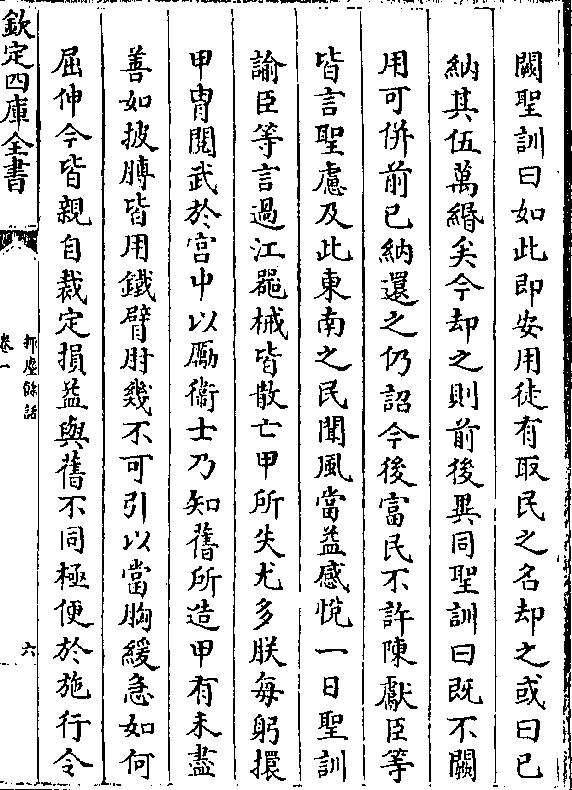 闕聖訓曰如此即安用徒有取民之名却之或曰已
納其伍萬緡矣今却之則前後異同聖訓曰既不闕
用可併前已納還之仍詔今後富民不許陳獻臣等
皆言聖慮及此東南之民聞風當益感悅一日聖訓
諭臣等言過江噐械皆散亡甲所失尤多朕每躬擐
甲胄閲武於宫中以勵衞士乃知舊所造甲有未盡
善如披膊皆用鐵臂肘幾不可引以當胸緩急如何
屈伸今皆親自裁定損益與舊不同極便於施行令
欽定四庫全書
揮麈餘話
卷一
六